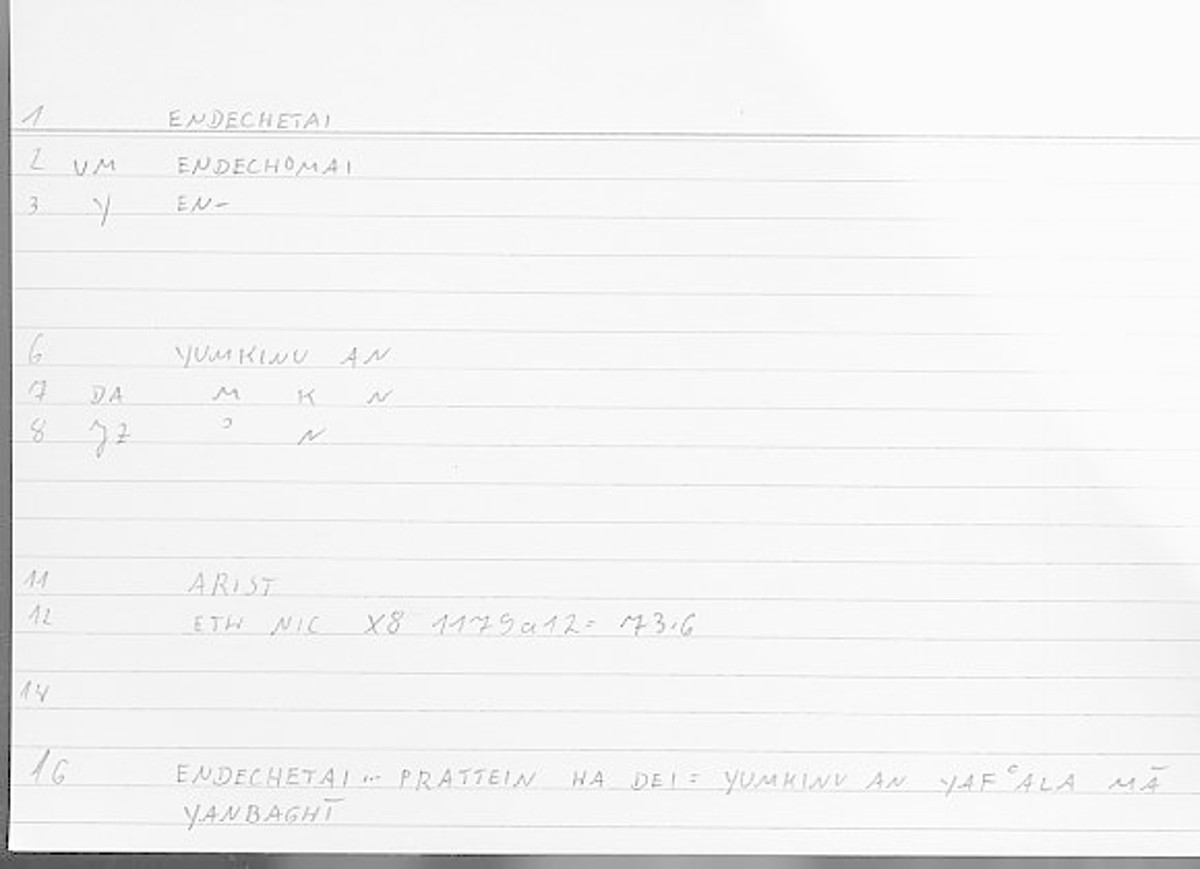 1 ENDECHETAI
2 VM ENDECHOMAI
3 Y EN-
6 YUMKINU AN
7 DA M K N
8 JZ ɔ N
11 ARIST
12 ETH NIC X8 1179a12= 73.6
14
16 ENDECHETAI... PRATTEIN HA DEI = YUMKINU AN YAFᶜALA MĀ
YANBAGHĪ